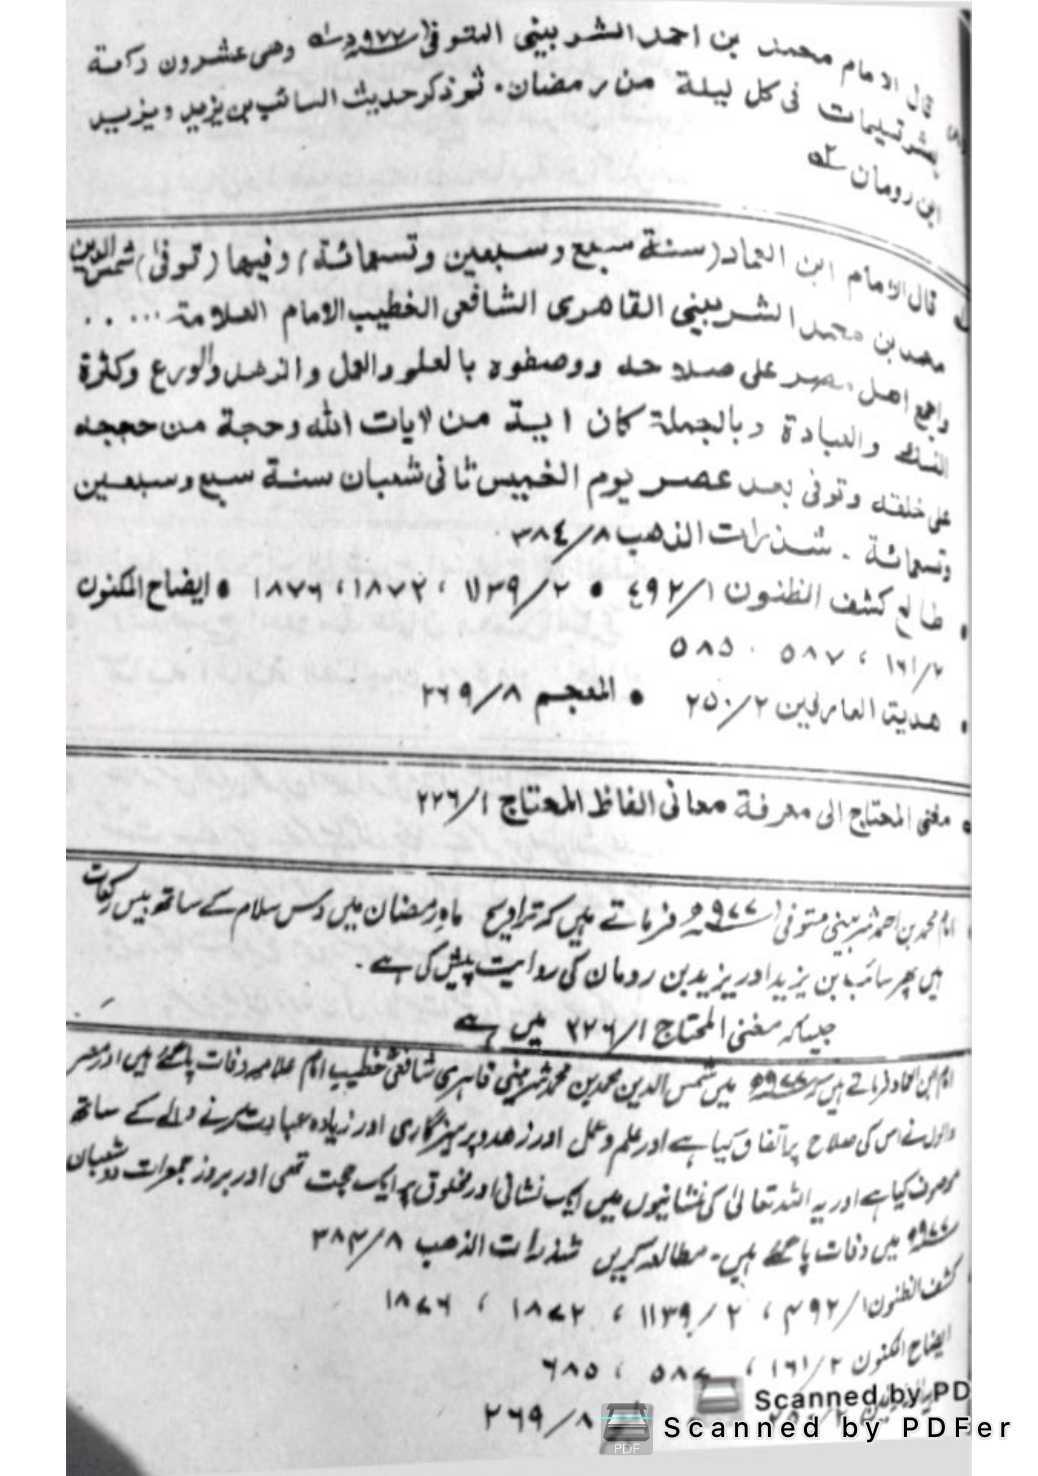 قال الامام محمد بن احمد الشربينی المتوفی ۹۷۷ھ وهی عشرون ركعة
بعشر تسلیمات فی كل ليلة من رمضان. ثم ذكر حديث السائب بن يزيد ويزيد
ابن رومان
قال الامام ابن العماد (سنة سبع وسبعين وتسعمائة) وفيها (توفی) شمس الدين
محمد بن محمد الشربينی القاهری الشافعی الخطيب الامام العلامة ... . .
واجمع اهل مصر على صلاحه ووصفوه بالعلم والعمل والزهد والورع وكثرة
النسك والعبادة وبالجملة كان اية من لايات الله وحجة من حججه
على خلقه وتوفی بعد عصر يوم الخميس ثانی شعبان سنة سبع وسبعين
وتسعمائة ـ شذرات الذهب ٣٨٤/٨.
• طالع كشف الظنون ٤٩٢/١ • ١١٣٩/٢، ١٨٧٢، ١٨٧٦ • ايضاح المكنون
١٦١/٢، ٥٨٧ . ٥٨٥
• هدية العارفين ٢٥٠/٢ • المعجم ٢٦٩/٨
• مغنی المحتاج الی معرفة معانی الفاظ المحتاج ٢٢٦/١
امام محمد بن احمد شربینی متوفی ۹۷۷ھ فرماتے ہیں کہ تراویح ماہ رمضان میں دس سلام کے ساتھ بیس رکعات
ہیں پھر سائب بن یزید اور یزید بن رومان کی روایت پیش کی ہے۔
جیسا کہ مغنی المحتاج ٢٢٦/١ میں ہے
امام ابن العماد فرماتے ہیں ۹۷۷ھ میں شمس الدین محمد بن محمد شربینی قاہری شافعی خطیب امام علامہ وفات پاگئے ہیں اور مصر
والوں نے اس کی صلاح پر اتفاق کیا ہے اور علم و عمل اور زھد و پرہیزگاری اور زیادہ عبادت کرنے والے کے ساتھ
موصوف کیا ہے اور یہ اللہ تعالیٰ کی نشانیوں میں ایک نشانی اور مخلوق پر ایک حجت تھی اور بروز جمعرات دو شعبان
۹۷۷ھ میں وفات پاگئے ہیں۔ مطالعہ کریں شذرات الذھب ٣٨٤/٨
کشف الظنون ٤٩٢/١، ١١٣٩/٢، ١٨٧٢، ١٨٧٦
ایضاح المکنون ١٦١/٢، ٥٨٧، ٦٨٥
٢٦٩/٨
Scanned by PD
Scanned by PDFer
PDF